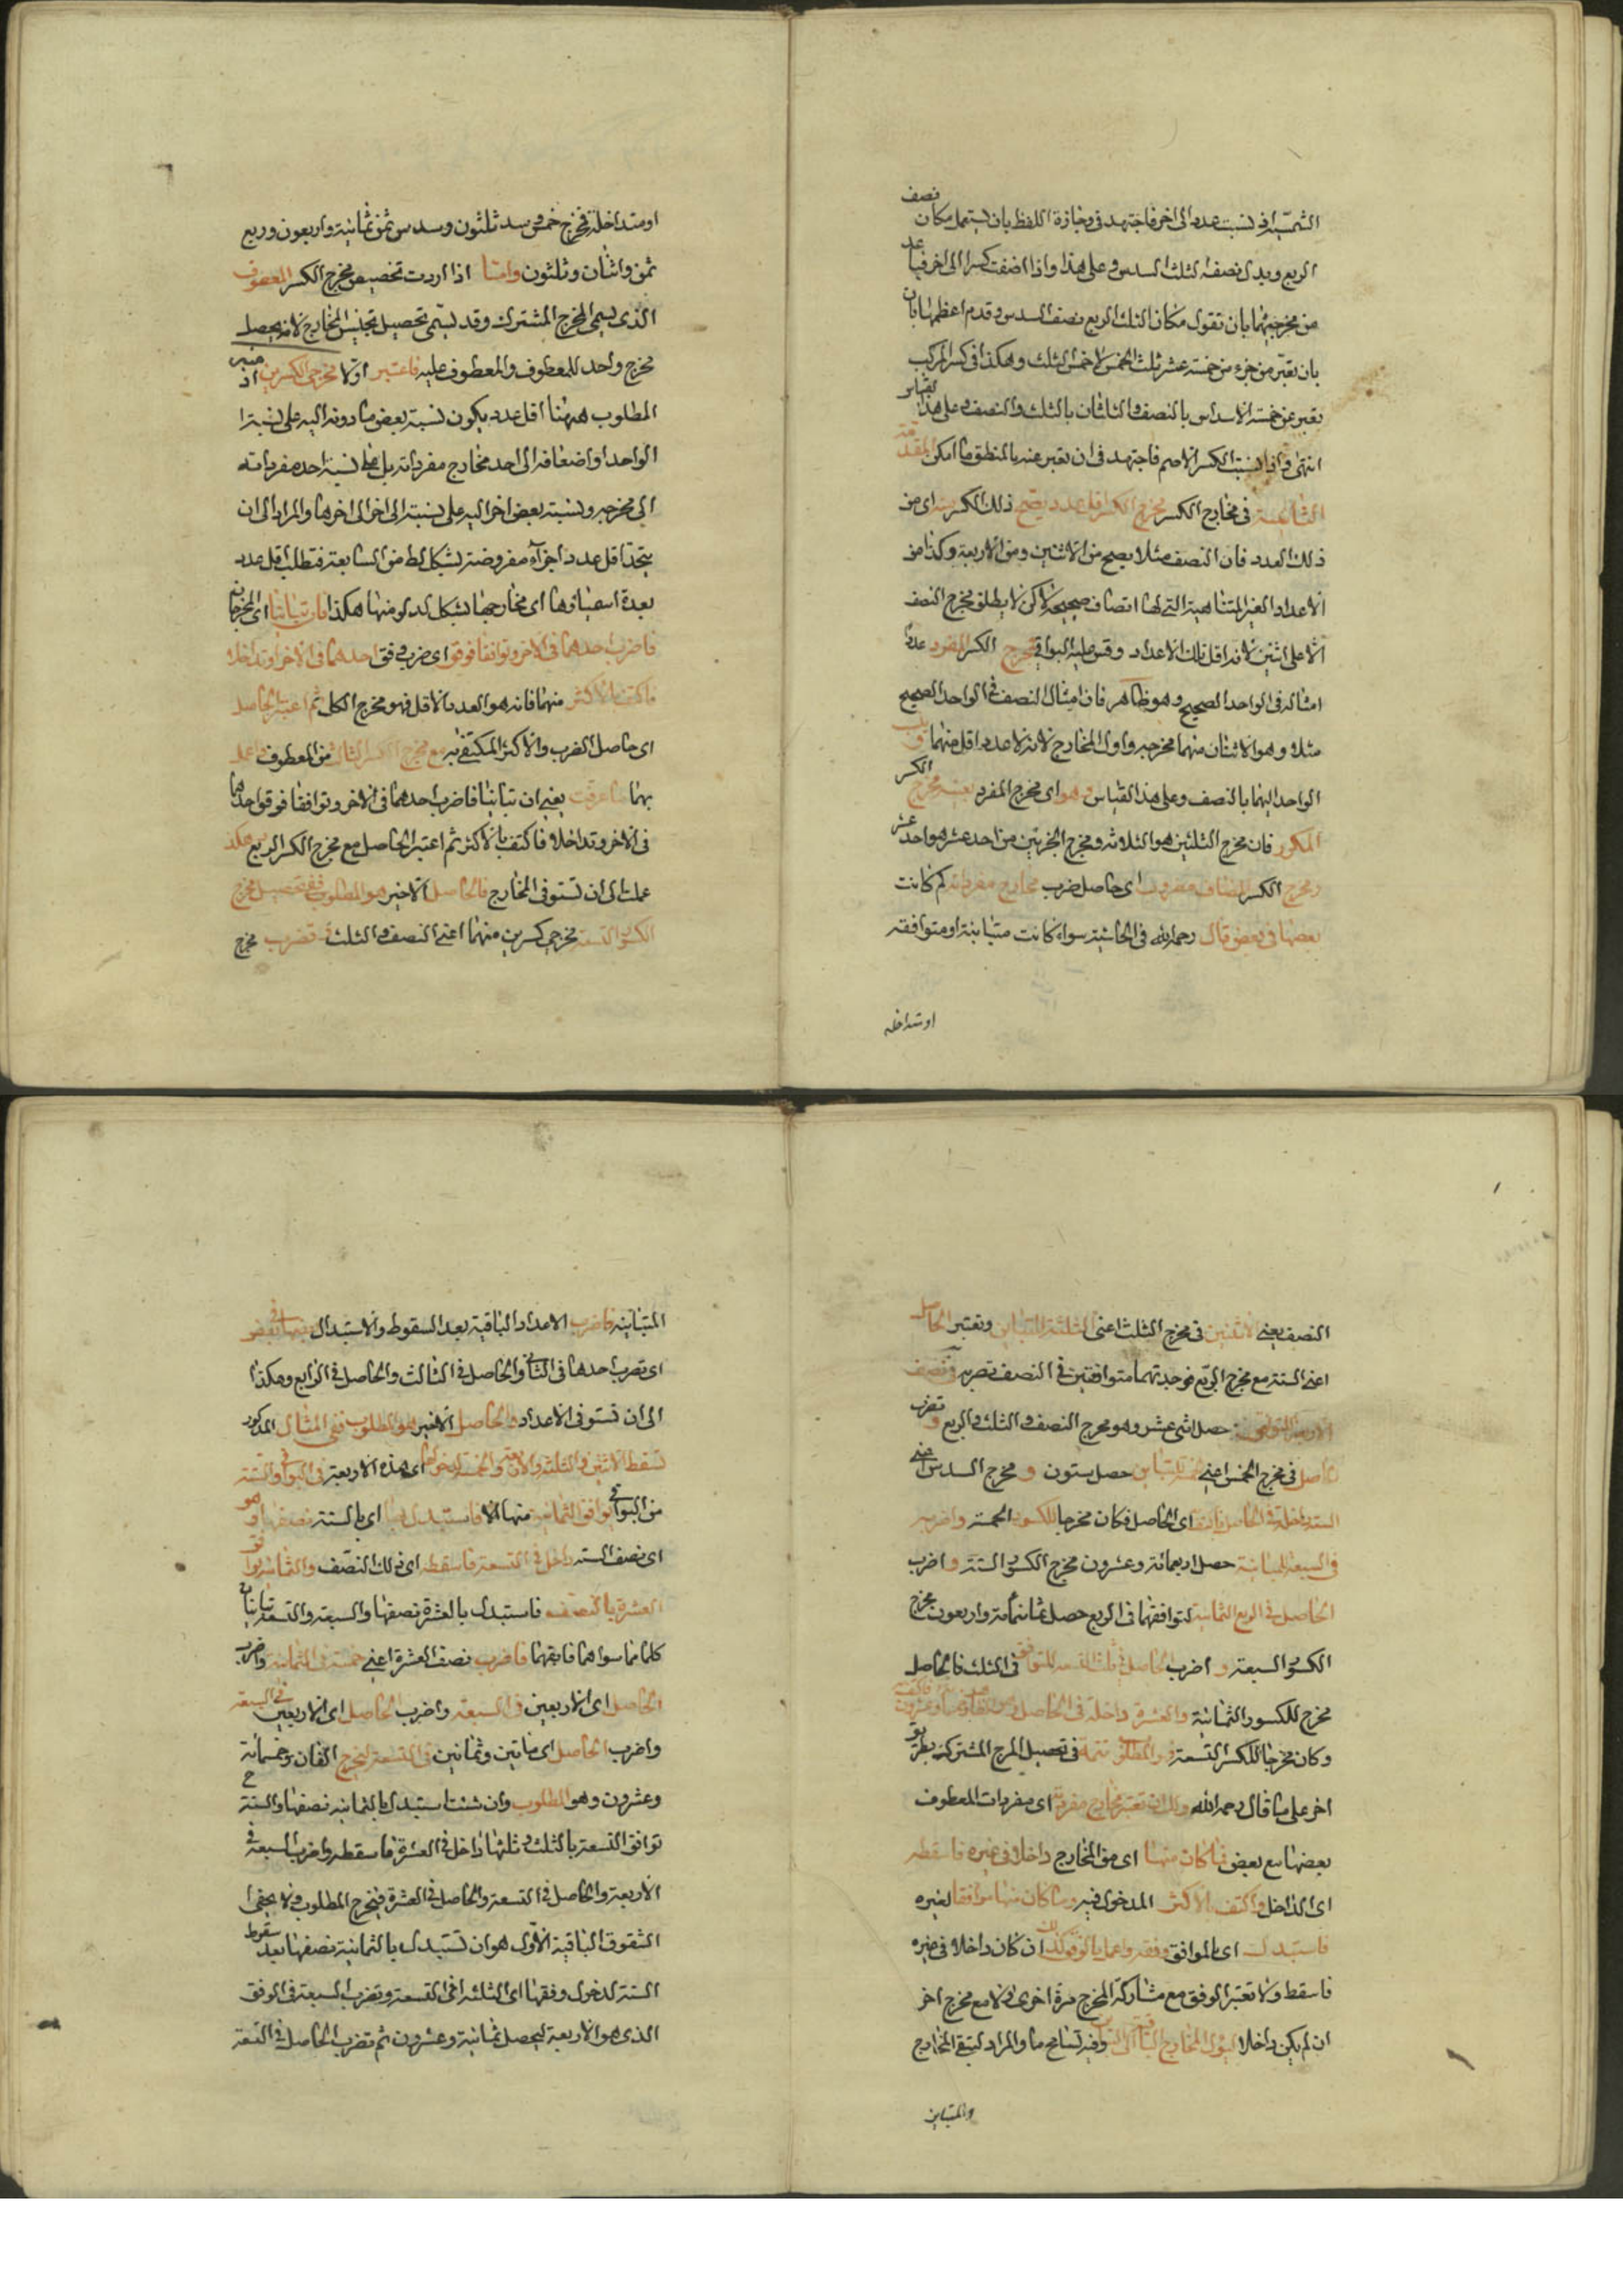 نصف
الشمسية في نسبت عدد الى اخر فاجتهد في وجازة اللفظ بان يستعمل مكان
الربع وبدل نصف الثلث السدس وعلى هذا واذا اضفت كسرا الى اخر
من مخرجيهما بان تقول مكان الثلث الربع نصف السدس وقدم اعظمهما بان
بان تعبر من جزء من خمسة عشر ثلث الخمس لا خمس الثلث وهكذا في كسر المركب
تعبر عن خمسة الاسداس بالنصف والثلثان بالثلث والنصف وعلى هذا
انتهى الكسر الاصم فاجتهد في ان تعبر عنه بالمنطق ما امكن المقدمة
الثالثة في مخارج الكسر مخرج الكسر اقل عدد يصح ذلك الكسر منه اى من
ذلك العدد فان النصف مثلا يصح من الاثنين ومن الاربعة وكذا من
الاعداد الغير المتناهية التي لها انصاف صحيحة لاكن لا يطلق مخرج النصف
الا على اثنين لانه اقل تلك الاعداد وقس عليه البواقي فمخرج الكسر المفرد عدد
امثاله في الواحد الصحيح وهو ظاهر فان امثال النصف في الواحد الصحيح
مثلا وهو الاثنان منهما مخرجه واول المخارج لانه لا عدد اقل منهما
الواحد اليهما بالنصف وعلى هذا القياس وهو اى مخرج المفرد بعينه مخرج الكسر
المكرر فان مخرج الثلثين هو الثلاثة ومخرج الجزئين من احد عشر هو احد عشر
ومخرج الكسر المضاف مضروب اى حاصل ضرب مخارج مفرداته كم كانت
بعضها في بعض قال رحمه الله في الحاشية سواء كانت متباينة او متوافقه
او متداخله
او متداخلة فمخرج خمس سدس ثلثون وسدس ثمن ثمانية واربعون وربع
ثمن واثنان وثلثون وامتا اذا اردت تحصيل مخرج الكسر المعطوف
الذى يسمى المخرج المشترك وقد يسمى تحصيل تجنيس المخارج لانه يحصل
مخرج واحد للمعطوف والمعطوف عليه فاعتبر اولا مخرجى الكسرين منه اذ
المطلوب ههنا اقل عدد يكون نسبة بعض ما دونه اليه على نسبة
الواحد او اضعافه الى احد مخارج مفرداته بل على نسبة احد مفرداته
الى مخرجه ونسبة بعض اخر اليه على نسبة الى اخر الى اخرها والمراد الى ان
يتحد اقل عدد اجزاه مفروضة بشكل لط من السابعة فنطلب اقل عدد
يعدة اسميا وها اى مخارجها بشكل لد لو منها هكذا فان تباينا اى المخرجان
فاضرب احدهما في الاخر وتوافقا فوفق اى ضرب وفق احدهما في الاخر او تداخلا
فاكتف بالاكثر منهما فانه هو العدد بالاقل فهو مخرج الكل ثم اعتبر الحاصل
اى حاصل الضرب والاكثر المكتفى به مع مخرج الكسر الثالث من المعطوف واعمل
بهما ما عرفت يعني ان تباينا فاضرب احدهما في الاخر وتوافقا فوفق احدهما
في الاخر وتداخلا فاكتف بالاكثر ثم اعتبر الحاصل مع مخرج الكسر الربع هكذ
عملت الى ان تستوفى المخارج فالحاصل الاخير هو المطلوب ففي تحصيل مخرج
الكسور التسعة مخرجى كسرين منهما اعنى النصف والثلث تضرب مخرج
النصف يعني الاثنين في مخرج الثلث اعنى الثلثة للتباين وتعتبر الحاصل
اعنى الستة مع مخرج الربع فوجدتهما متوافقين في النصف تضربه في نصف
الاربعة للتوافق حصل اثنى عشر وهو مخرج النصف والثلث والربع وتضرب
الحاصل في مخرج الخمس اعنى خمسة للتباين حصل ستون و مخرج السدس اعنى
الستة داخلة في الحاصل فاكتف اى الحاصل فكان مخرجا للكسور الخمسة واضربه
في السبعة للمباينة حصل اربعمائة وعشرون مخرج الكسور الستة واضرب
الحاصل في الربع الثمانية لتوافقهما في الربع حصل ثمانمائة واربعون مخرج
الكسور السبعة و اضرب الحاصل في ثلث التسعة للتوافق في الثلث فالحاصل
مخرج للكسور الثمانية والعشرة داخلة في الحاصل
وكان مخرجا للكسر التسعة وهو المطلوب تتمة في تحصيل المخرج المشترك بطريق
اخر على ما قال رحمه الله ولك ان تعتبر مخارج مفرداته اى مفردات المعطوف
بعضها مع بعض فما كان منها اى من المخارج داخلا في غيره فاسقطه
اى الداخل واكتف بالاكثر المدخول فيه وما كان منها موافقا لغيره
فاستبدل اى بالموافق وفقه واعمل بالوفق كذلك ان كان داخلا في غيره
فاسقط ولا تعتبر الوفق مع مشاركة المخرج مرة اخرى لا مع مخرج اخر
ان لم يكن داخلا ليؤل المخارج الباقية الى التباين وفيه تسامح ما والمراد لتبقى المخارج
والمتباين
المتباينه فاضرب الاعداد الباقية بعد السقوط والاستبدال بعضها في بعض
اى تضرب احدها في الثانى والحاصل في الثالث والحاصل في الرابع وهكذا
الى ان تستوفى الاعداد والحاصل الاخير هو المطلوب ففي المثال المذكور
تسقط الاثنين والثلثة والاربعة والخمسة لدخولها اى هذه الاربعة في البواقي والستة
من البواقي توافق الثمانية منها الا فاستبدل بها اى بالستة نصفها وهو
اى نصف الستة داخل في التسعة فاسقطه اى ذلك النصف والثمانية توافق
العشرة بالنصف فاستبدل بالعشرة نصفها والسبعة والتسعة تباينان
كلما ما سواهما فابقهما فاضرب نصف العشرة اعنى خمسة في الثمانية واضرب
الحاصل اى الاربعين في السبعة واضرب الحاصل اى الاربعين في السبعة
واضرب الحاصل اى مأتين وثمانين في التسعة ليخرج الفان وخمسمائة
وعشرون وهو المطلوب وان شئت استبدل بالثمانيه نصفها والستة ح
توافق التسعة بالثلث وثلثها داخل في العشرة فاسقطه واضرب السبعة في
الاربعة والحاصل في التسعة والحاصل في العشرة فيخرج المطلوب ولا يخفى
الشقوق الباقية الاول هو ان تستبدل بالثمانية نصفها بعد سقوط
الستة لدخول وفقها اى الثلثة في التسعة وتضرب السبعة في الوفق
الذى هو الاربعة ليحصل ثمانية وعشرون ثم تضرب الحاصل في التسعة